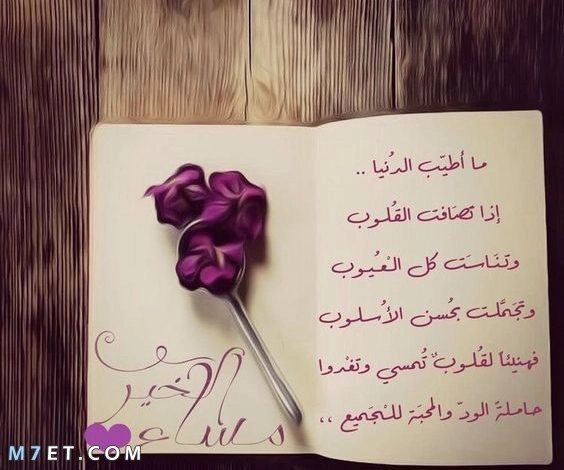 ما أطيّب الدُنيا ..
إذا تصَافت القُلوب
وتنَاسَت كل العُيوب
وتجَمَّلت بحُسن الأُسلوب
فهنيئاً لقُلوبٌ تُمسي وتغْدوا
حاملةً الودّ والمحبَة للنجَميع ،،
مساء الخير
M7ET.COM